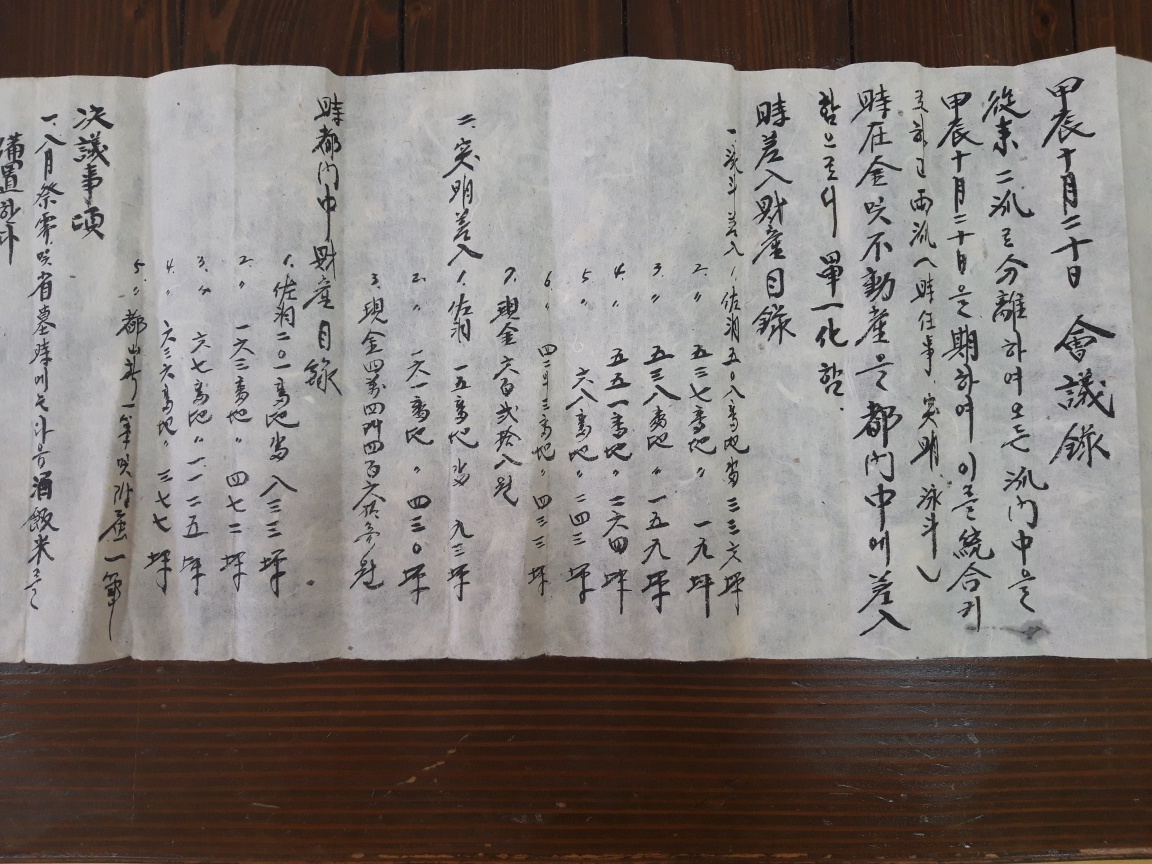 甲辰十月二十日 會議錄
從來 二派로 分離하여 오든 派門中을
甲辰十月二十日을 期하여 이를 統合키
로하고 兩派 時任事 突明, 泳斗
時在金 및 不動産을 都門中에 差入
함으로서 單一化 함.
時差入財産目錄
一. 泳斗 差入 1. 佐洞 五0八番地 畓 三三六坪
2. 〃 五三七番地 〃 一九坪
3. 〃 五三八番地 〃 一五九坪
4. 〃 五五一番地 〃 二六四坪
5. 〃 六八番地 〃 二四三坪
6. 〃 四二番地 〃 四三三坪
7. 現金 六百弍拾八원
二. 突明 差入 1. 佐洞 一五番地 畓 九三坪
2. 〃 一六一番地 〃 四三0坪
3. 現金 四萬四阡四百 원
時都門中財産目錄
1. 佐洞 二0一番地 畓 八三三坪
2. 〃 一六三番地 〃 四七二坪
3. 〃 六七番地 〃 一一二五坪
4. 〃 六三六番地 〃 三七七坪
5. 〃 都山 一筆 및 附屬 一筆
決議事項
一. 八月祭 및 省墓時에는 斗 酒飯米
備置하다